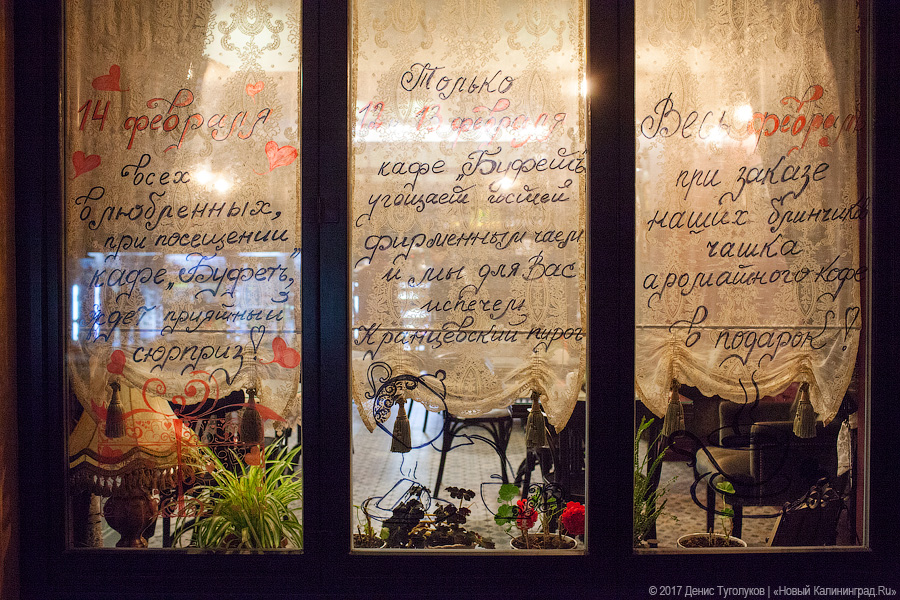 14 февраля
всех
влюбленных,
при посещении
кафе „Буфетъ"
ждет приятный
сюрприз!
Только
12 13 февраля
кафе „Буфетъ"
угощает гостей
фирменным чаем
и мы для Вас
испечем
Кранцевский пирог
Весь февраль
при заказе
наших блинчиков
чашка
ароматного кофе
в подарок!
© 2017 Денис Туголуков | «Новый Калининград.Ru»